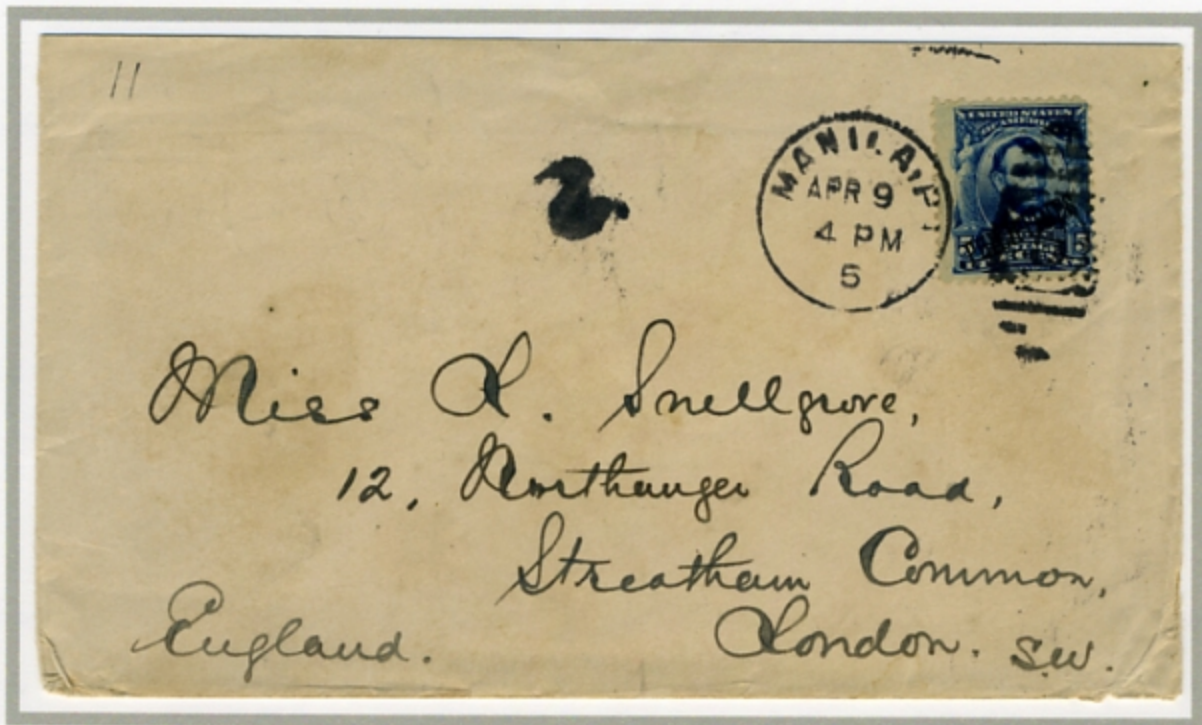 11
MANILA, P.I.
APR 9
4 PM
5
UNITED STATES
OF AMERICA
5 5
Miss L. Snellgrove,
12, Northanger Road,
Streatham Common,
London. SW.
England.